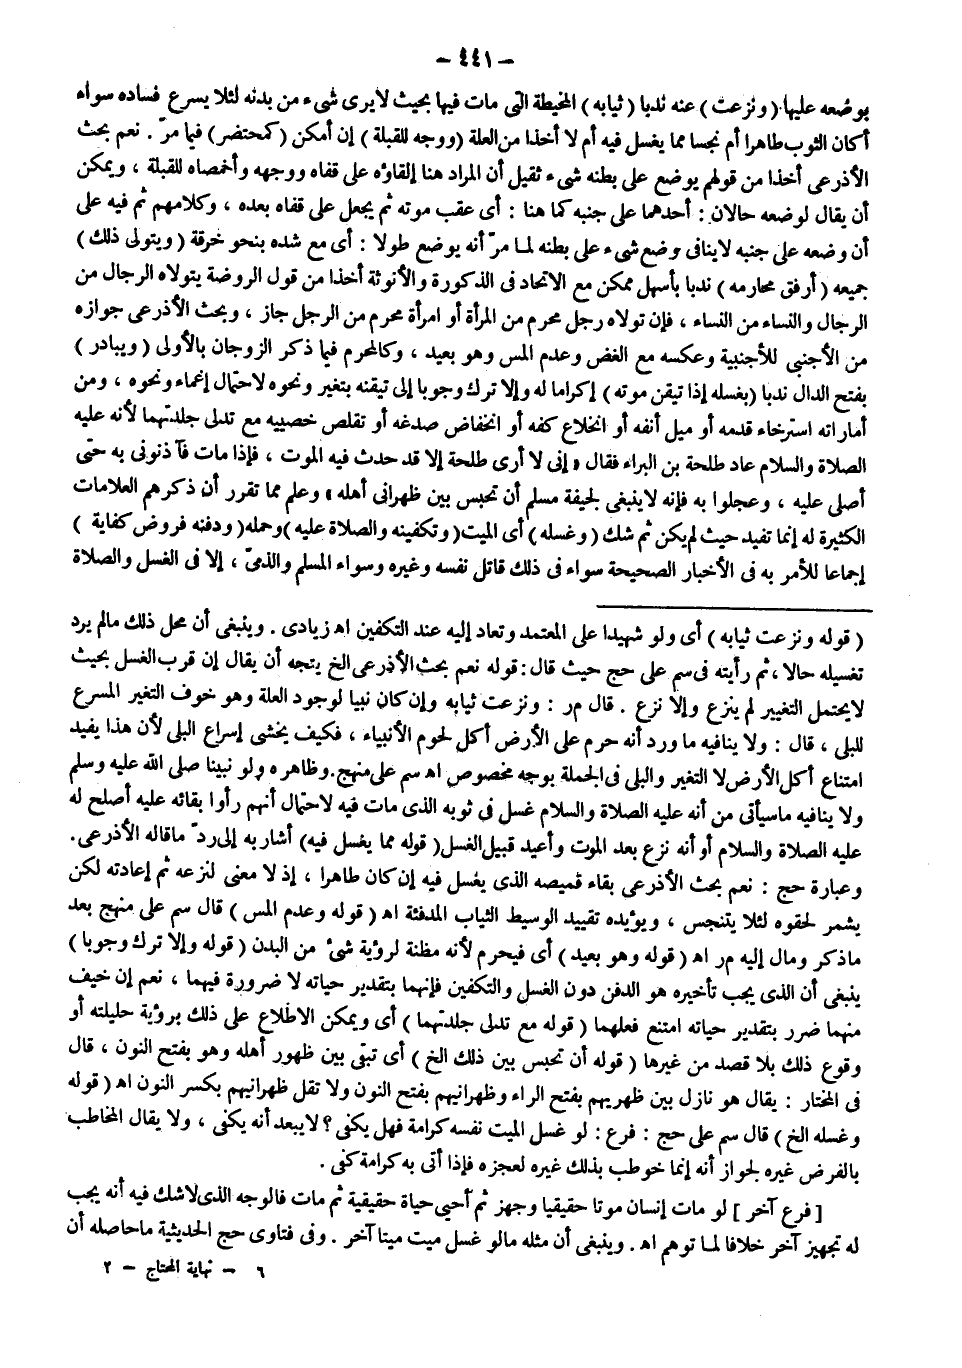 - ٤٤١ -
بوضعه عليها (ونزعت) عنه ندبا (ثيابه) المخيطة التى مات فيها بحيث لايرى شىء من بدنه لئلا يسرع فساده سواء
أكان الثوب طاهرا أم نجسا مما يغسل فيه أم لا أخذا من العلة (ووجه للقبلة) إن أمكن (كمحتضر) فيما مرّ . نعم بحث
الأذرعى أخذا من قولهم يوضع على بطنه شىء ثقيل أن المراد هنا إلقاؤه على قفاه ووجهه وأخمصاه للقبلة ، ويمكن
أن يقال لوضعه حالان : أحدهما على جنبه كما هنا : أى عقب موته ثم يجعل على قفاه بعده ، وكلامهم ثم فيه على
أن وضعه على جنبه لاينافى وضع شىء على بطنه لما مرّ أنه يوضع طولا : أى مع شده بنحو خرقة (ويتولى ذلك)
جميعه (أرفق محارمه) ندبا بأسهل ممكن مع الاتحاد فى الذكورة والأنوثة أخذا من قول الروضة يتولاه الرجال من
الرجال والنساء من النساء ، فإن تولاه رجل محرم من المرأة أو امرأة محرم من الرجل جاز ، وبحث الأذرعى جوازه
من الأجنبى للأجنبية وعكسه مع الغض وعدم المس وهو بعيد ، وكالمحرم فيما ذكر الزوجان بالأولى (ويبادر)
بفتح الدال ندبا (بغسله إذا تيقن موته) إكراما له وإلا ترك وجوبا إلى تيقنه بتغير ونحوه لاحتمال إغماء ونحوه ، ومن
أماراته استرخاء قدمه أو ميل أنفه أو انخلاع كفه أو انخفاض صدغه أو تقلص خصييه مع تدلى جلدتهما لأنه عليه
الصلاة والسلام عاد طلحة بن البراء فقال « إنى لا أرى طلحة إلا قد حدث فيه الموت ، فإذا مات فآذنونى به حتى
أصلى عليه ، وعجلوا به فإنه لاينبغى لجيفة مسلم أن تحبس بين ظهرانى أهله » وعلم مما تقرر أن ذكرهم العلامات
الكثيرة له إنما تفيد حيث لم يكن ثم شك (وغسله) أى الميت (وتكفينه والصلاة عليه) وحمله (ودفنه فروض كفاية)
إجماعا للأمر به فى الأخبار الصحيحة سواء فى ذلك قاتل نفسه وغيره وسواء المسلم والذمىّ ، إلا فى الغسل والصلاة
(قوله ونزعت ثيابه) أى ولو شهيدا على المعتمد وتعاد إليه عند التكفين اه زيادى . وينبغى أن محل ذلك مالم يرد
تغسيله حالا ، ثم رأيته فى سم على حج حيث قال : قوله نعم بحث الأذرعى الخ يتجه أن يقال إن قرب الغسل بحيث
لايحتمل التغيير لم ينزع وإلا نزع . قال مر : ونزعت ثيابه وإن كان نبيا لوجود العلة وهو خوف التغير المسرع
للبلى ، قال : ولا ينافيه ما ورد أنه حرم على الأرض أكل لحوم الأنبياء ، فكيف يخشى إسراع البلى لأن هذا يفيد
امتناع أكل الأرض لا التغير والبلى فى الجملة بوجه مخصوص اه سم على منهج . وظاهره ولو نبينا صلى الله عليه وسلم
ولا ينافيه ماسيأتى من أنه عليه الصلاة والسلام غسل فى ثوبه الذى مات فيه لاحتمال أنهم رأوا بقائه عليه أصلح له
عليه الصلاة والسلام أو أنه نزع بعد الموت وأعيد قبيل الغسل (قوله مما يغسل فيه) أشار به إلى ردّ ماقاله الأذرعى.
وعبارة حج : نعم بحث الأذرعى بقاء قميصه الذى يغسل فيه إن كان طاهرا ، إذ لا معنى لنزعه ثم إعادته لكن
يشمر لحقوه لئلا يتنجس ، ويؤيده تقييد الوسيط الثياب المدفئة اه (قوله وعدم المس) قال سم على منهج بعد
ماذكر ومال إليه مر اه (قوله وهو بعيد) أى فيحرم لأنه مظنة لرؤية شئ من البدن (قوله وإلا ترك وجوبا)
ينبغى أن الذى يجب تأخيره هو الدفن دون الغسل والتكفين فإنهما بتقدير حياته لا ضرورة فيهما ، نعم إن خيف
منهما ضرر بتقدير حياته امتنع فعلهما (قوله مع تدلى جلدتهما) أى ويمكن الاطلاع على ذلك برؤية حليلته أو
وقوع ذلك بلا قصد من غيرها (قوله أن تحبس بين ذلك الخ) أى تبقى بين ظهور أهله وهو بفتح النون ، قال
فى المختار : يقال هو نازل بين ظهريهم بفتح الراء وظهرانيهم بفتح النون ولا تقل ظهرانيهم بكسر النون اه (قوله
وغسله الخ) قال سم على حج : فرع : لو غسل الميت نفسه كرامة فهل يكفى ؟ لايبعد أنه يكفى ، ولا يقال المخاطب
بالفرض غيره لجواز أنه إنما خوطب بذلك غيره لعجزه فإذا أتى به كرامة كفى .
[فرع آخر] لو مات إنسان موتا حقيقيا وجهز ثم أحيى حياة حقيقية ثم مات فالوجه الذى لاشك فيه أنه يجب
له تجهيز آخر خلافا لما توهم اه . وينبغى أن مثله مالو غسل ميت ميتا آخر . وفى فتاوى حج الحديثية ماحاصله أن
٦ - نهاية المحتاج - ٢